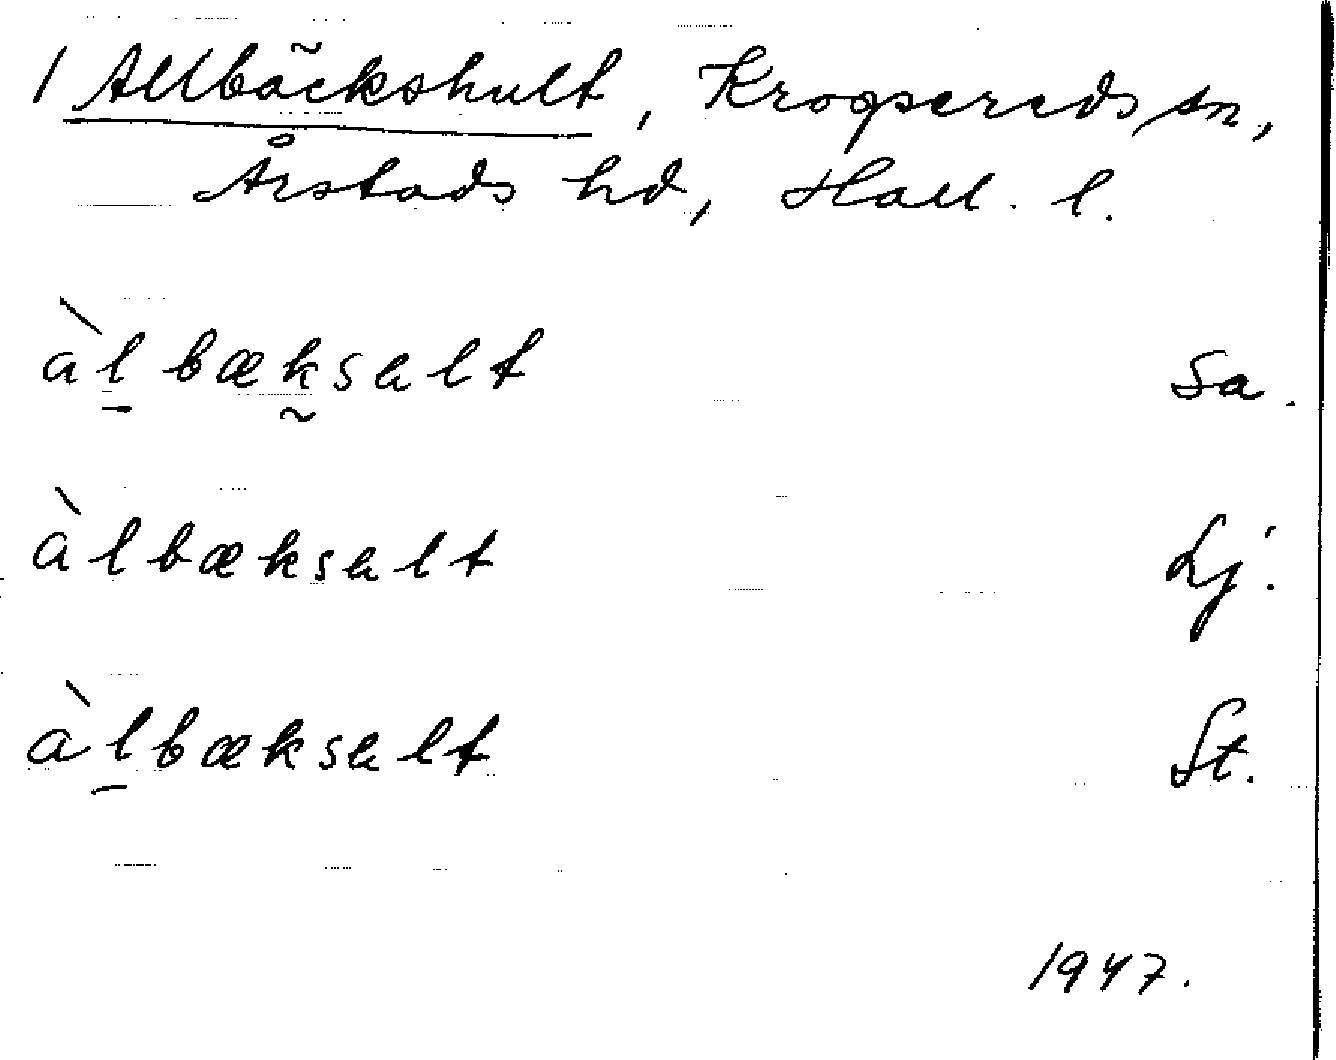 1 Allbäckshult, Krogsereds sn,
Årstads hd, Hall. l.
àlbæksalt Sa.
àlbæksalt Lj.
àlbæksalt St.
1947.